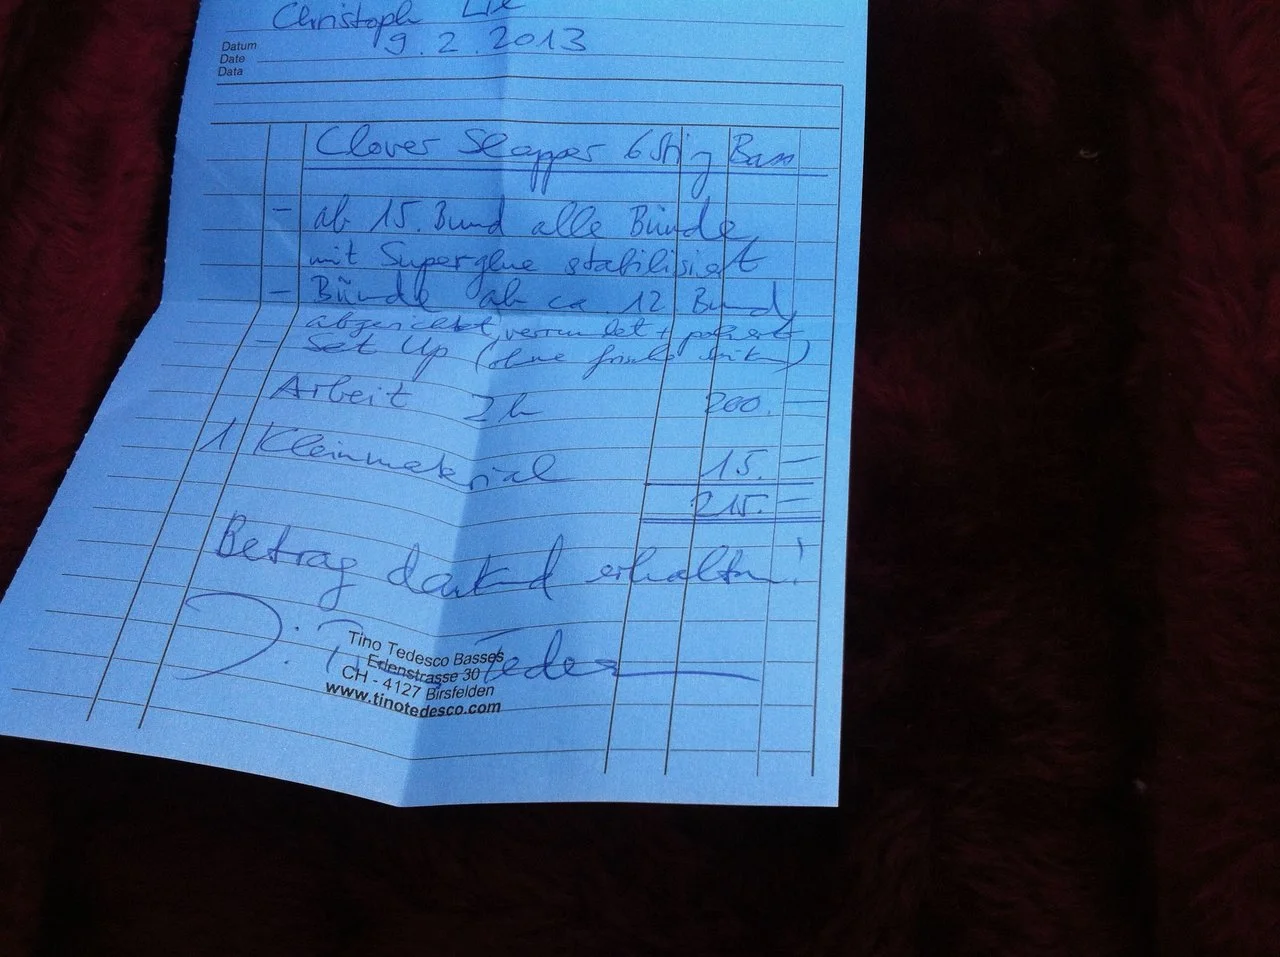 Christoph
Datum
Date
Data
9.2.2013
Clover Slapper 6 String Bass
- ab 15. Bund alle Bünde
mit Superglue stabilisiert
- Bünde ab ca. 12 Bund
abgerichtet, verrundet + poliert
- Set Up (ohne frische Saiten)
Arbeit 2h 200.-
1 Kleinmaterial 15.-
215.-
Betrag dankend erhalten!
T. Tedesco
Tino Tedesco Basses
Erlenstrasse 30
CH - 4127 Birsfelden
www.tinotedesco.com